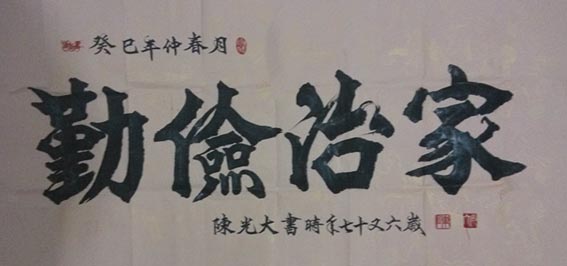 癸巳年仲春月
勤儉治家
陳光大書時年七十又六歲